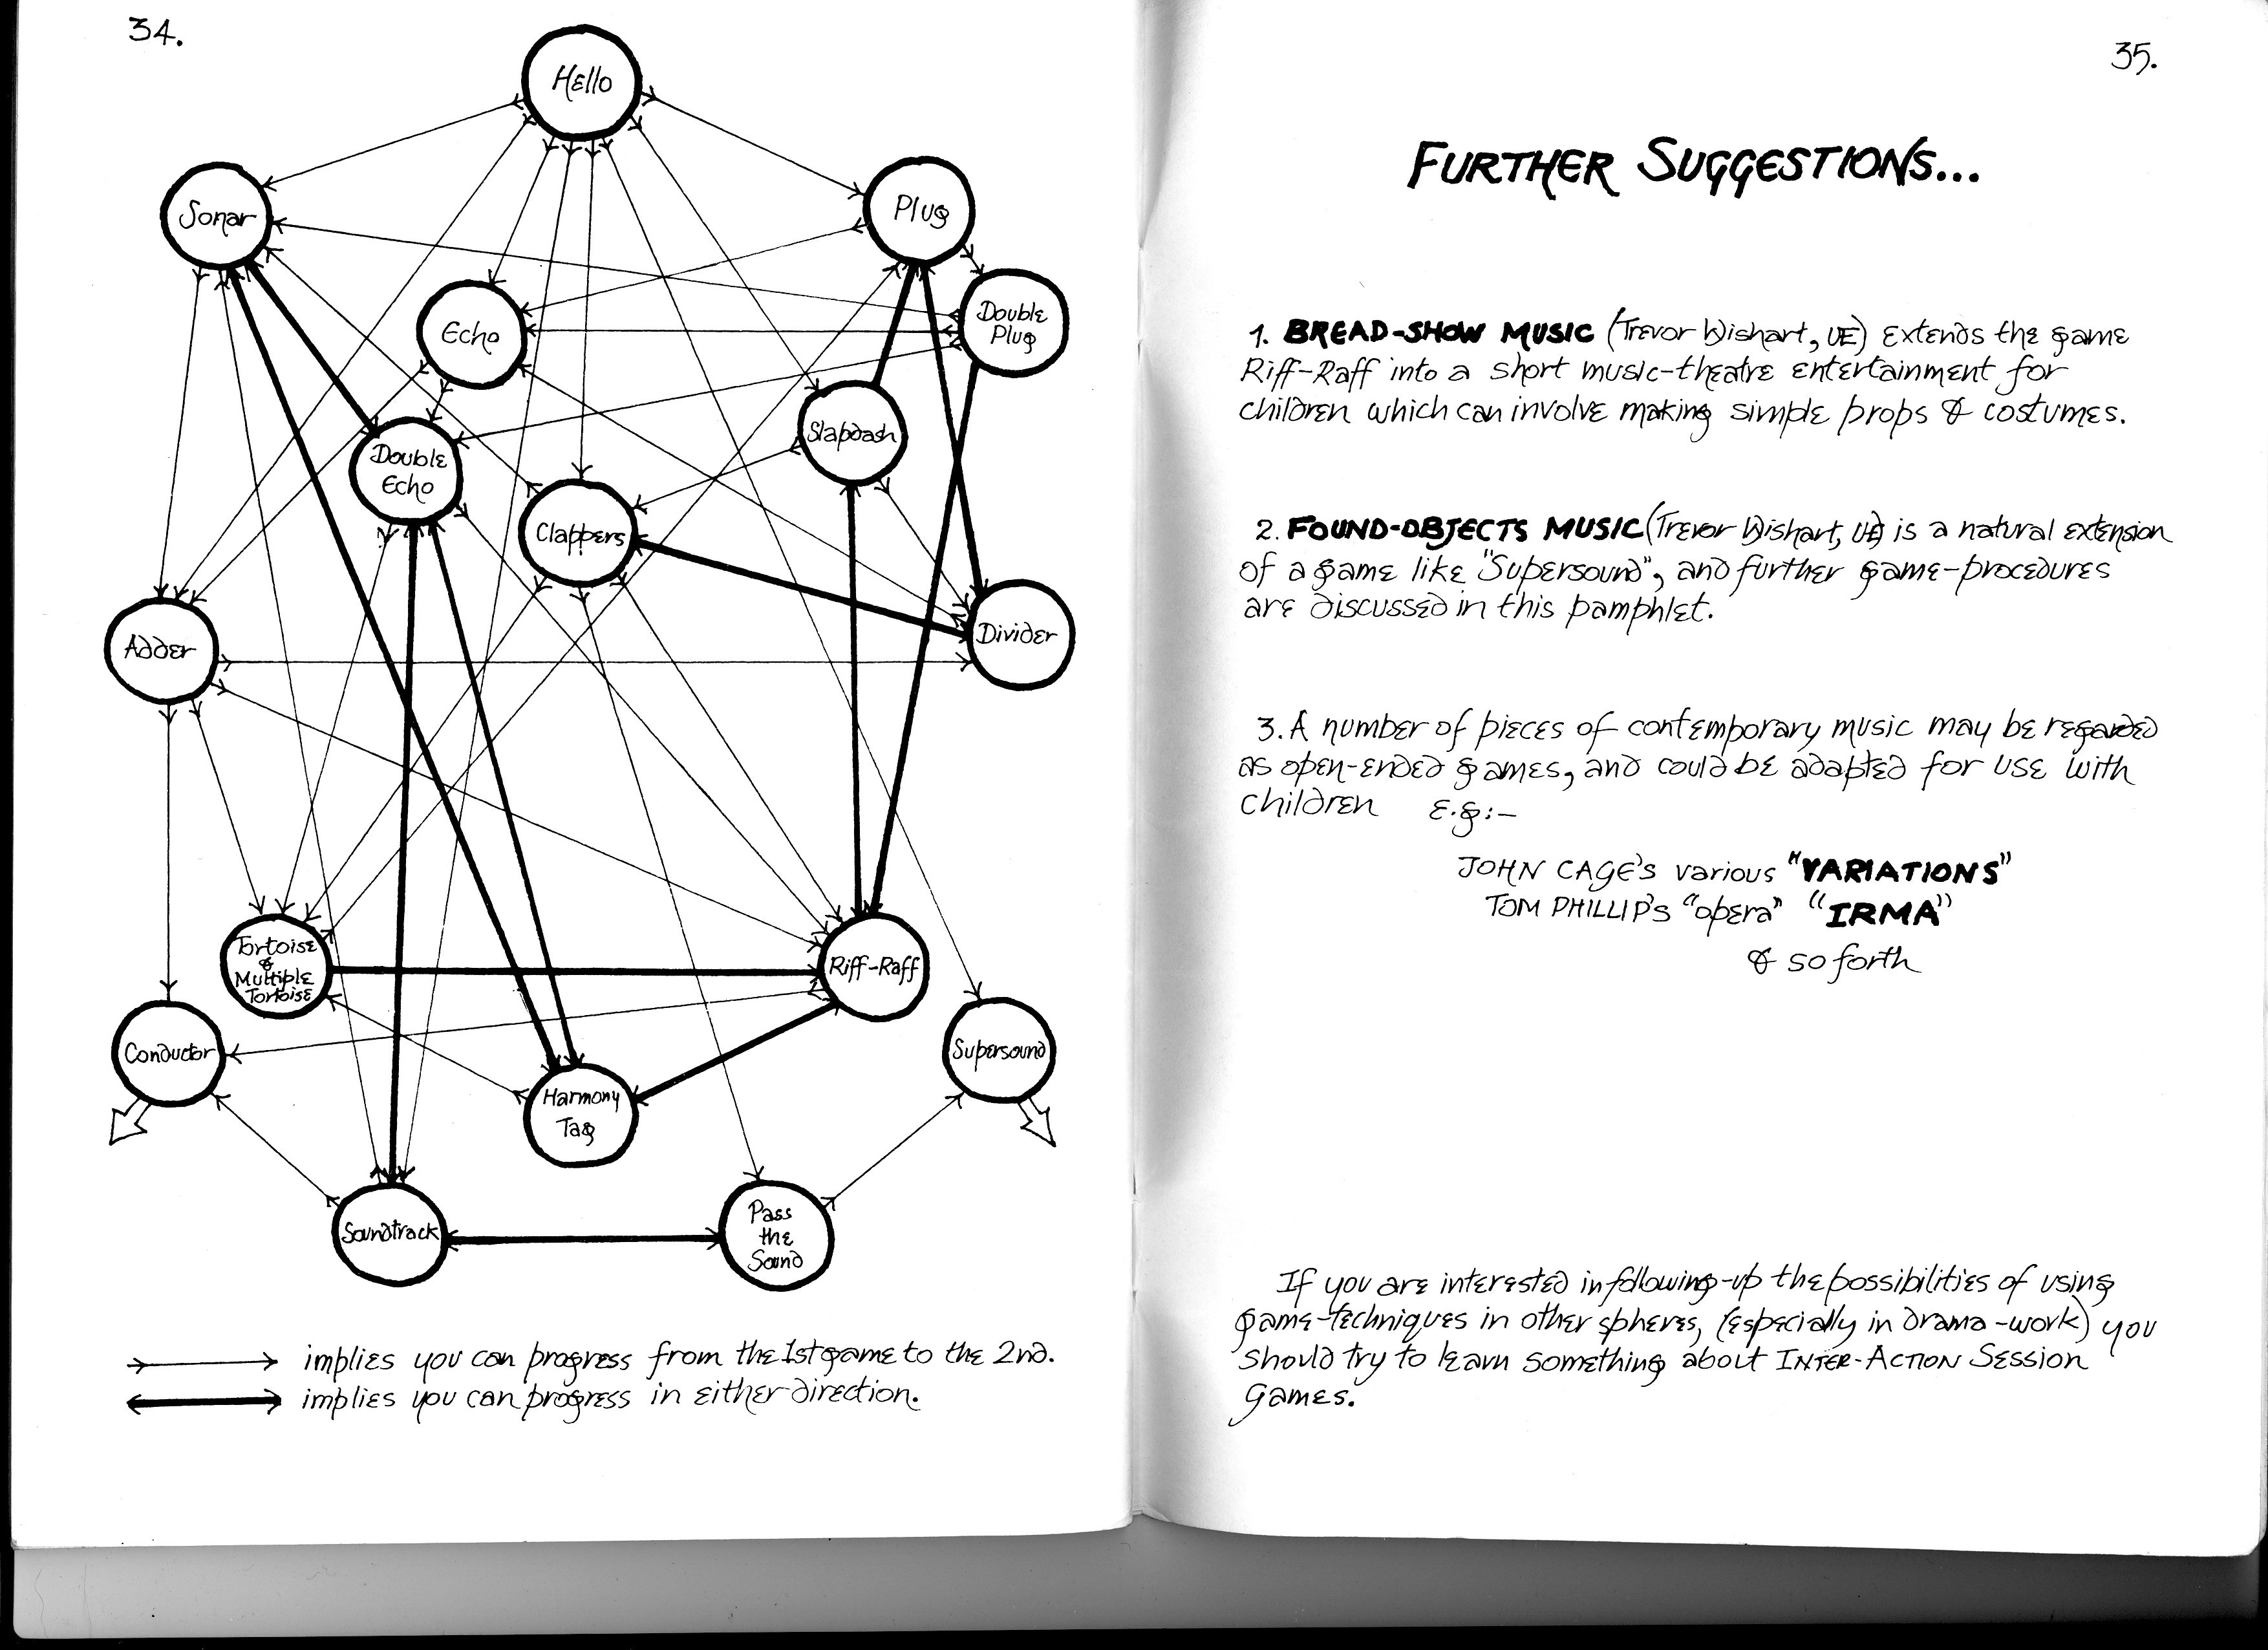 34.
Hello
Sonar
Plug
Echo
Double
Plug
Slapdash
Double
Echo
Clappers
Adder
Divider
Tortoise
&
Multiple
Tortoise
Riff-Raff
Conductor
Supersound
Harmony
Tag
Soundtrack
Pass
the
Sound
implies you can progress from the 1st game to the 2nd.
implies you can progress in either direction.
35.
FURTHER SUGGESTIONS...
1. BREAD-SHOW MUSIC (Trevor Wishart, UE) extends the game
Riff-Raff into a short music-theatre entertainment for
children which can involve making simple props & costumes.
2. FOUND-OBJECTS MUSIC (Trevor Wishart, UE) is a natural extension
of a game like "Supersound", and further game-procedures
are discussed in this pamphlet.
3. A number of pieces of contemporary music may be regarded
as open-ended games, and could be adapted for use with
children e.g:-
JOHN CAGE'S various "VARIATIONS"
TOM PHILLIP's "opera" "IRMA"
& so forth
If you are interested in following-up the possibilities of using
game-techniques in other spheres, (especially in drama-work) you
should try to learn something about INTER-ACTION SESSION
GAMES.